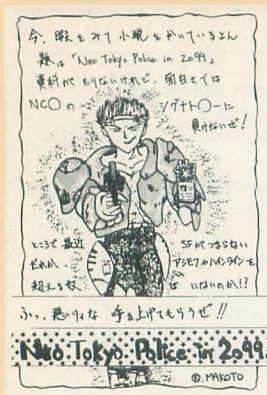 今、暇をみて小説をかいているよん
題は「Neo Tokyo Police in 2099」
資料がたりないけれど、面白さでは
NC〇のシグナト〇ーに
負けないぜ!
ところで最近SFがつまらない
だれか、アシモフやハインラインを
超える奴はいないのか!?
ふっ、悪いィな 手を上げてもらうぜ!!
Neo Tokyo Police in 2099
©.MAKOTO